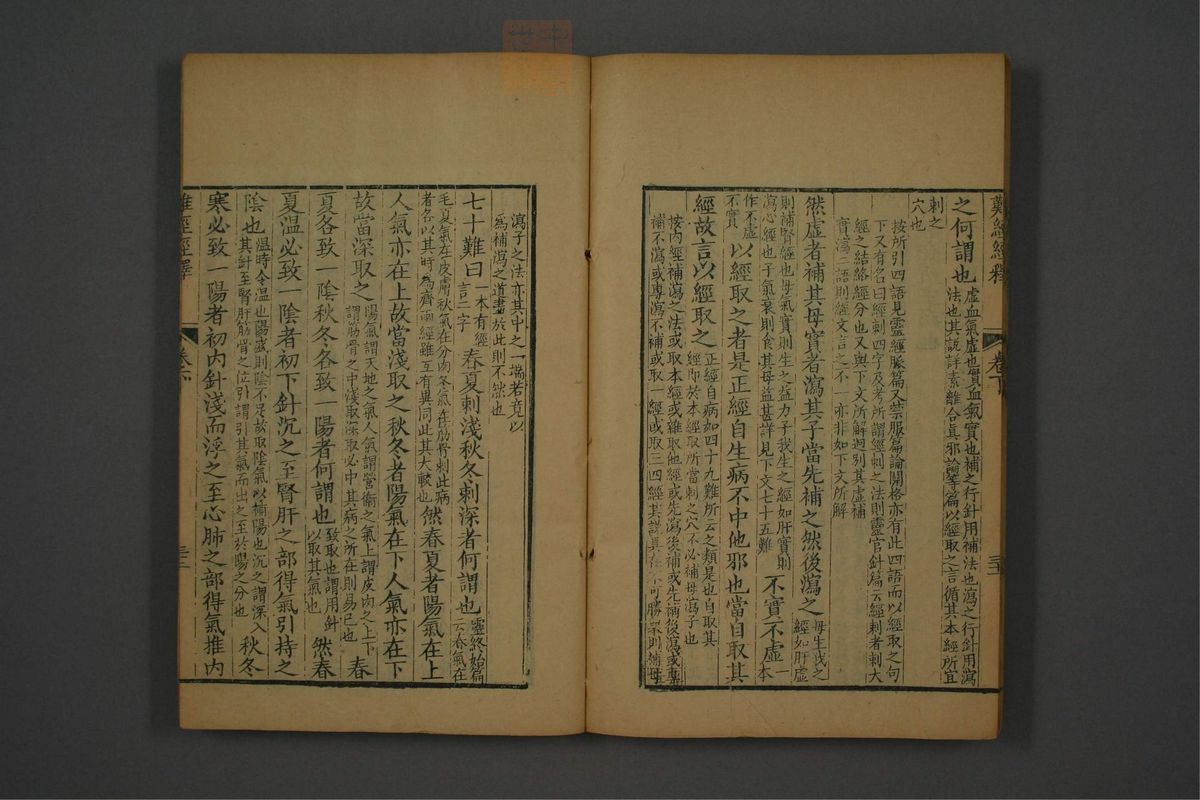 難經經釋
卷下
之何謂也虛血氣虛也實血氣實也補之行針用補法也瀉之行針用瀉
法也其說詳素離合眞邪論等篇以經取之言循其本經所宜
刺之
穴也
按所引四語見靈經脈篇又禁服篇論關格亦有此四語而以經取之句
下又有名曰經刺四字及考所謂經刺之法則靈官針篇云經刺者刺大
經之結絡經分也又與下文所解迥別其虛補
實瀉二語則經文言之不一亦非如下文所解
然虛者補其母實者瀉其子當先補之然後瀉之母生我之
經如肝虛
則補腎經也母氣實則生之益力子我生之經如肝實則
瀉心經也子氣衰則食其母益甚詳見下文七十五難不實不虛一本
作不虛
不實以經取之者是正經自生病不中他邪也當自取其
經故言以經取之正經自病如四十九難所云之類是也自取其
經即於本經取所當刺之穴不必補母瀉子也
按內經補瀉之法或取本經或雜取他經或先瀉後補或先補後瀉或專
補不瀉或專瀉不補或取一經或取三四經其說具在不可勝舉則補母
瀉子之法亦其中之一端若竟以
爲補瀉之道盡於此則不然也
七十難曰一本有經
言二字春夏刺淺秋冬刺深者何謂也靈終始篇
云春氣在
毛夏氣在皮膚秋氣在分肉冬氣在筋骨刺此病
者各以其時爲齊兩經雖互有異同此其大較也然春夏者陽氣在上
人氣亦在上故當淺取之秋冬者陽氣在下人氣亦在下
故當深取之陽氣謂天地之氣人氣謂營衞之氣上謂皮肉之上下
謂筋骨之中淺取深取必中其病之所在則易已也春
夏各致一陰秋冬各致一陽者何謂也致取也謂用針
以取其氣也然春
夏溫必致一陰者初下針沉之至腎肝之部得氣引持之
陰也溫時令溫也陽盛則陰不足故取陰氣以補陽也沉之謂深入
其針至腎肝筋骨之位引謂引其氣而出之至於陽之分也秋冬
寒必致一陽者初內針淺而浮之至心肺之部得氣推內
難經經釋
卷下